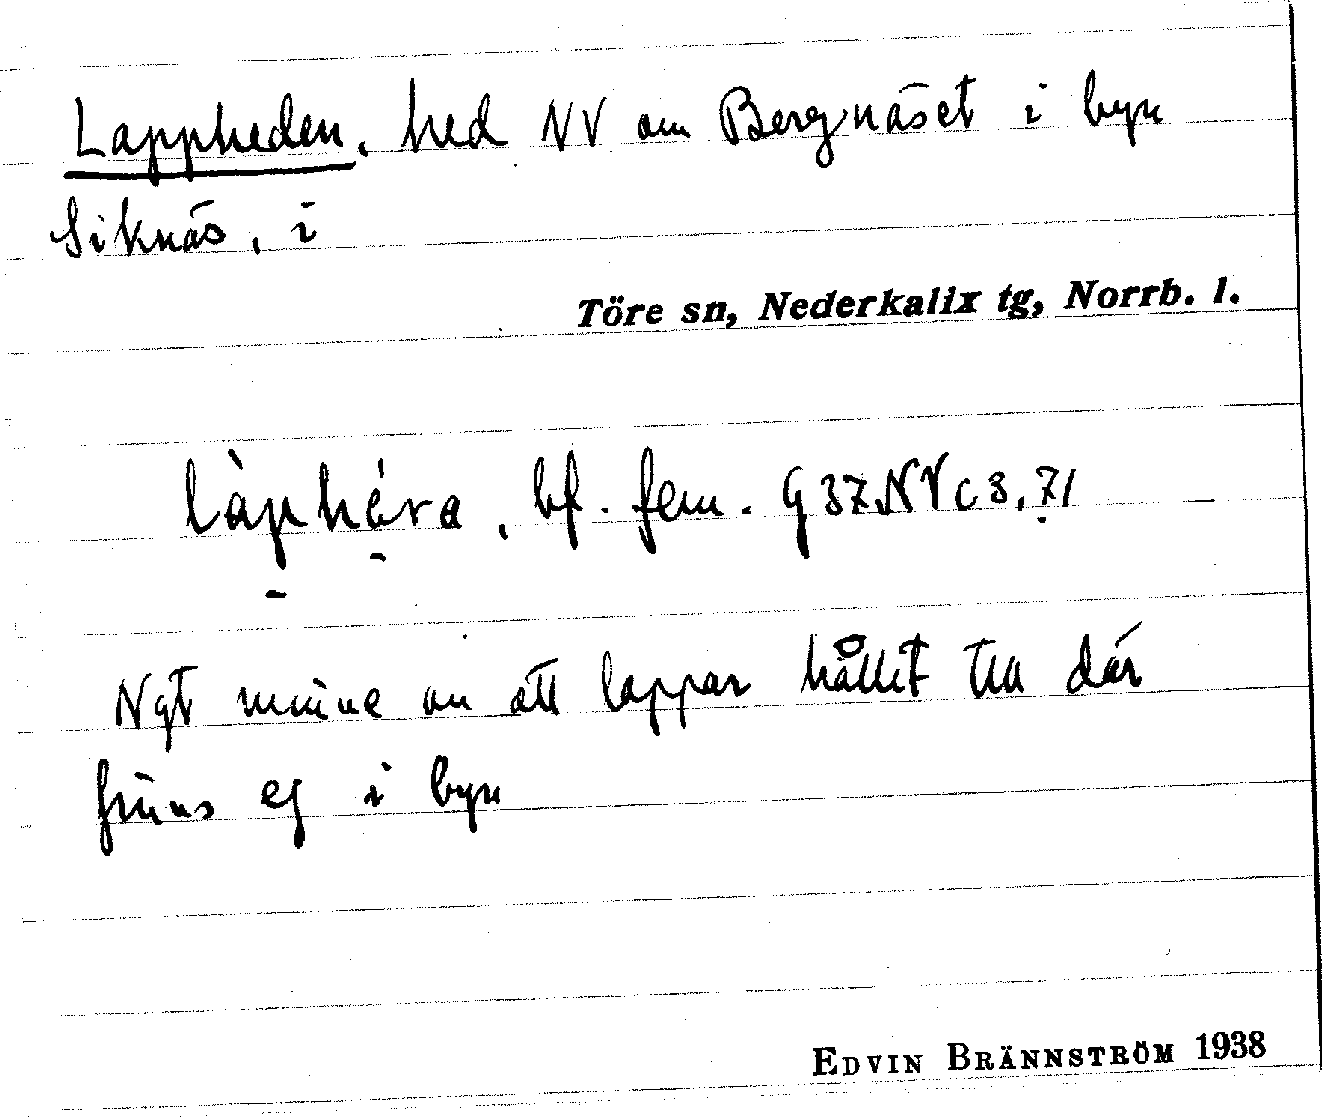 Lappheden, hed NV om Bergnäset i byn
Siknäs, i
Töre sn, Nederkalix tg, Norrb. l.
làphéra, bf. fem. G37.NV c 8, 71
Ngt minne om att lappar hållit till där
finns ej i byn
EDVIN BRÄNNSTRÖM 1938